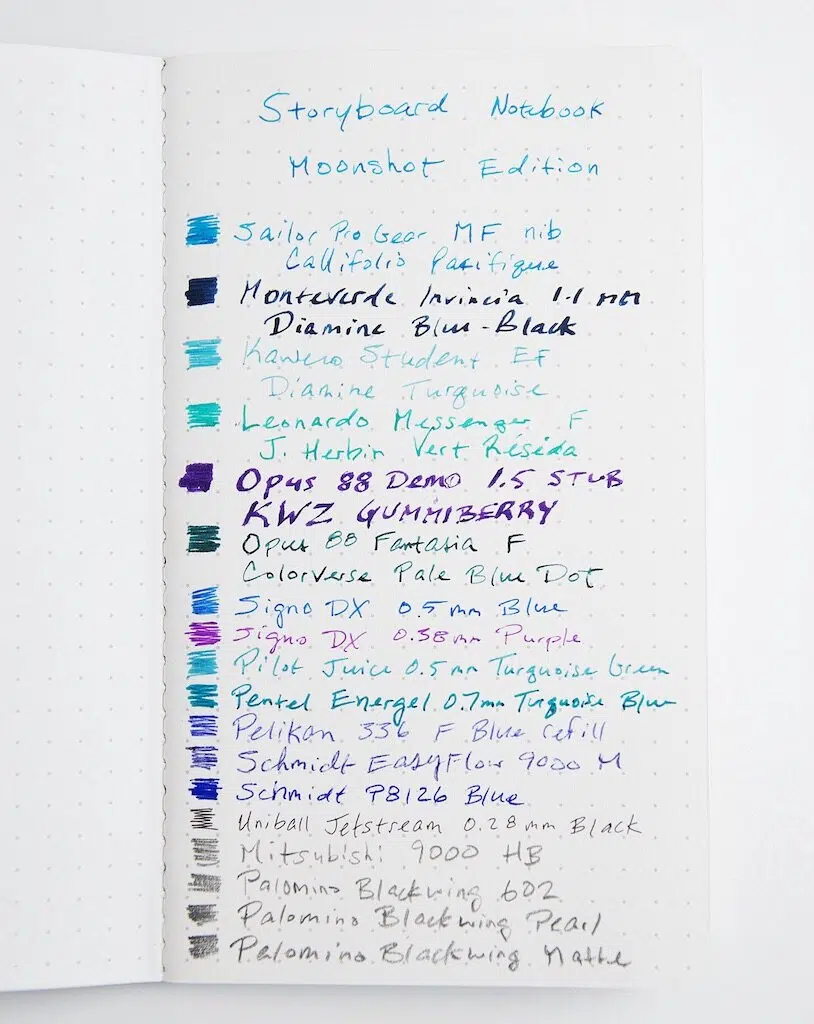 Storyboard Notebook
Moonshot Edition
Sailor Pro Gear MF nib
Callifolio Pacifique
Monteverde Invincia 1.1 mm
Diamine Blue-Black
Kaweco Student EF
Diamine Turquoise
Leonardo Messenger F
J. Herbin Vert Réséda
Opus 88 Demo 1.5 STUB
KWZ GUMMIBERRY
Opus 88 Fantasia F
Colorverse Pale Blue Dot
Signo DX 0.5mm Blue
Signo DX 0.38mm Purple
Pilot Juice 0.5mm Turquoise Green
Pentel Energel 0.7mm Turquoise Blue
Pelikan 336 F Blue refill
Schmidt EasyFlow 9000 M
Schmidt P8126 Blue
Uniball Jetstream 0.28mm Black
Mitsubishi 9000 HB
Palomino Blackwing 602
Palomino Blackwing Pearl
Palomino Blackwing Matte